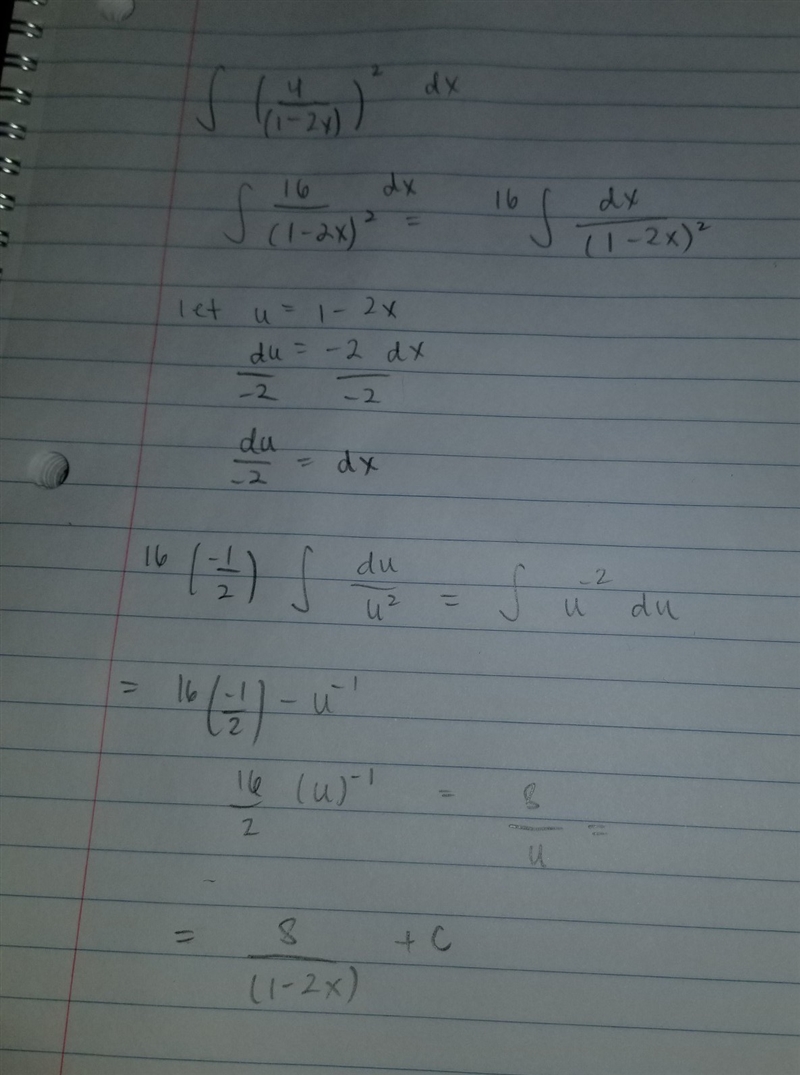 ∫ (4/(1-2x))² dx
∫ 16/(1-2x)² dx = 16 ∫ dx/(1-2x)²
let u = 1-2x
du/-2 = -2 dx/-2
du/-2 = dx
16 (-1/2) ∫ du/u² = ∫ u⁻² du
= 16 (-1/2) - u⁻¹
16/2 (u)⁻¹ = 8/u =
= 8/(1-2x) + C